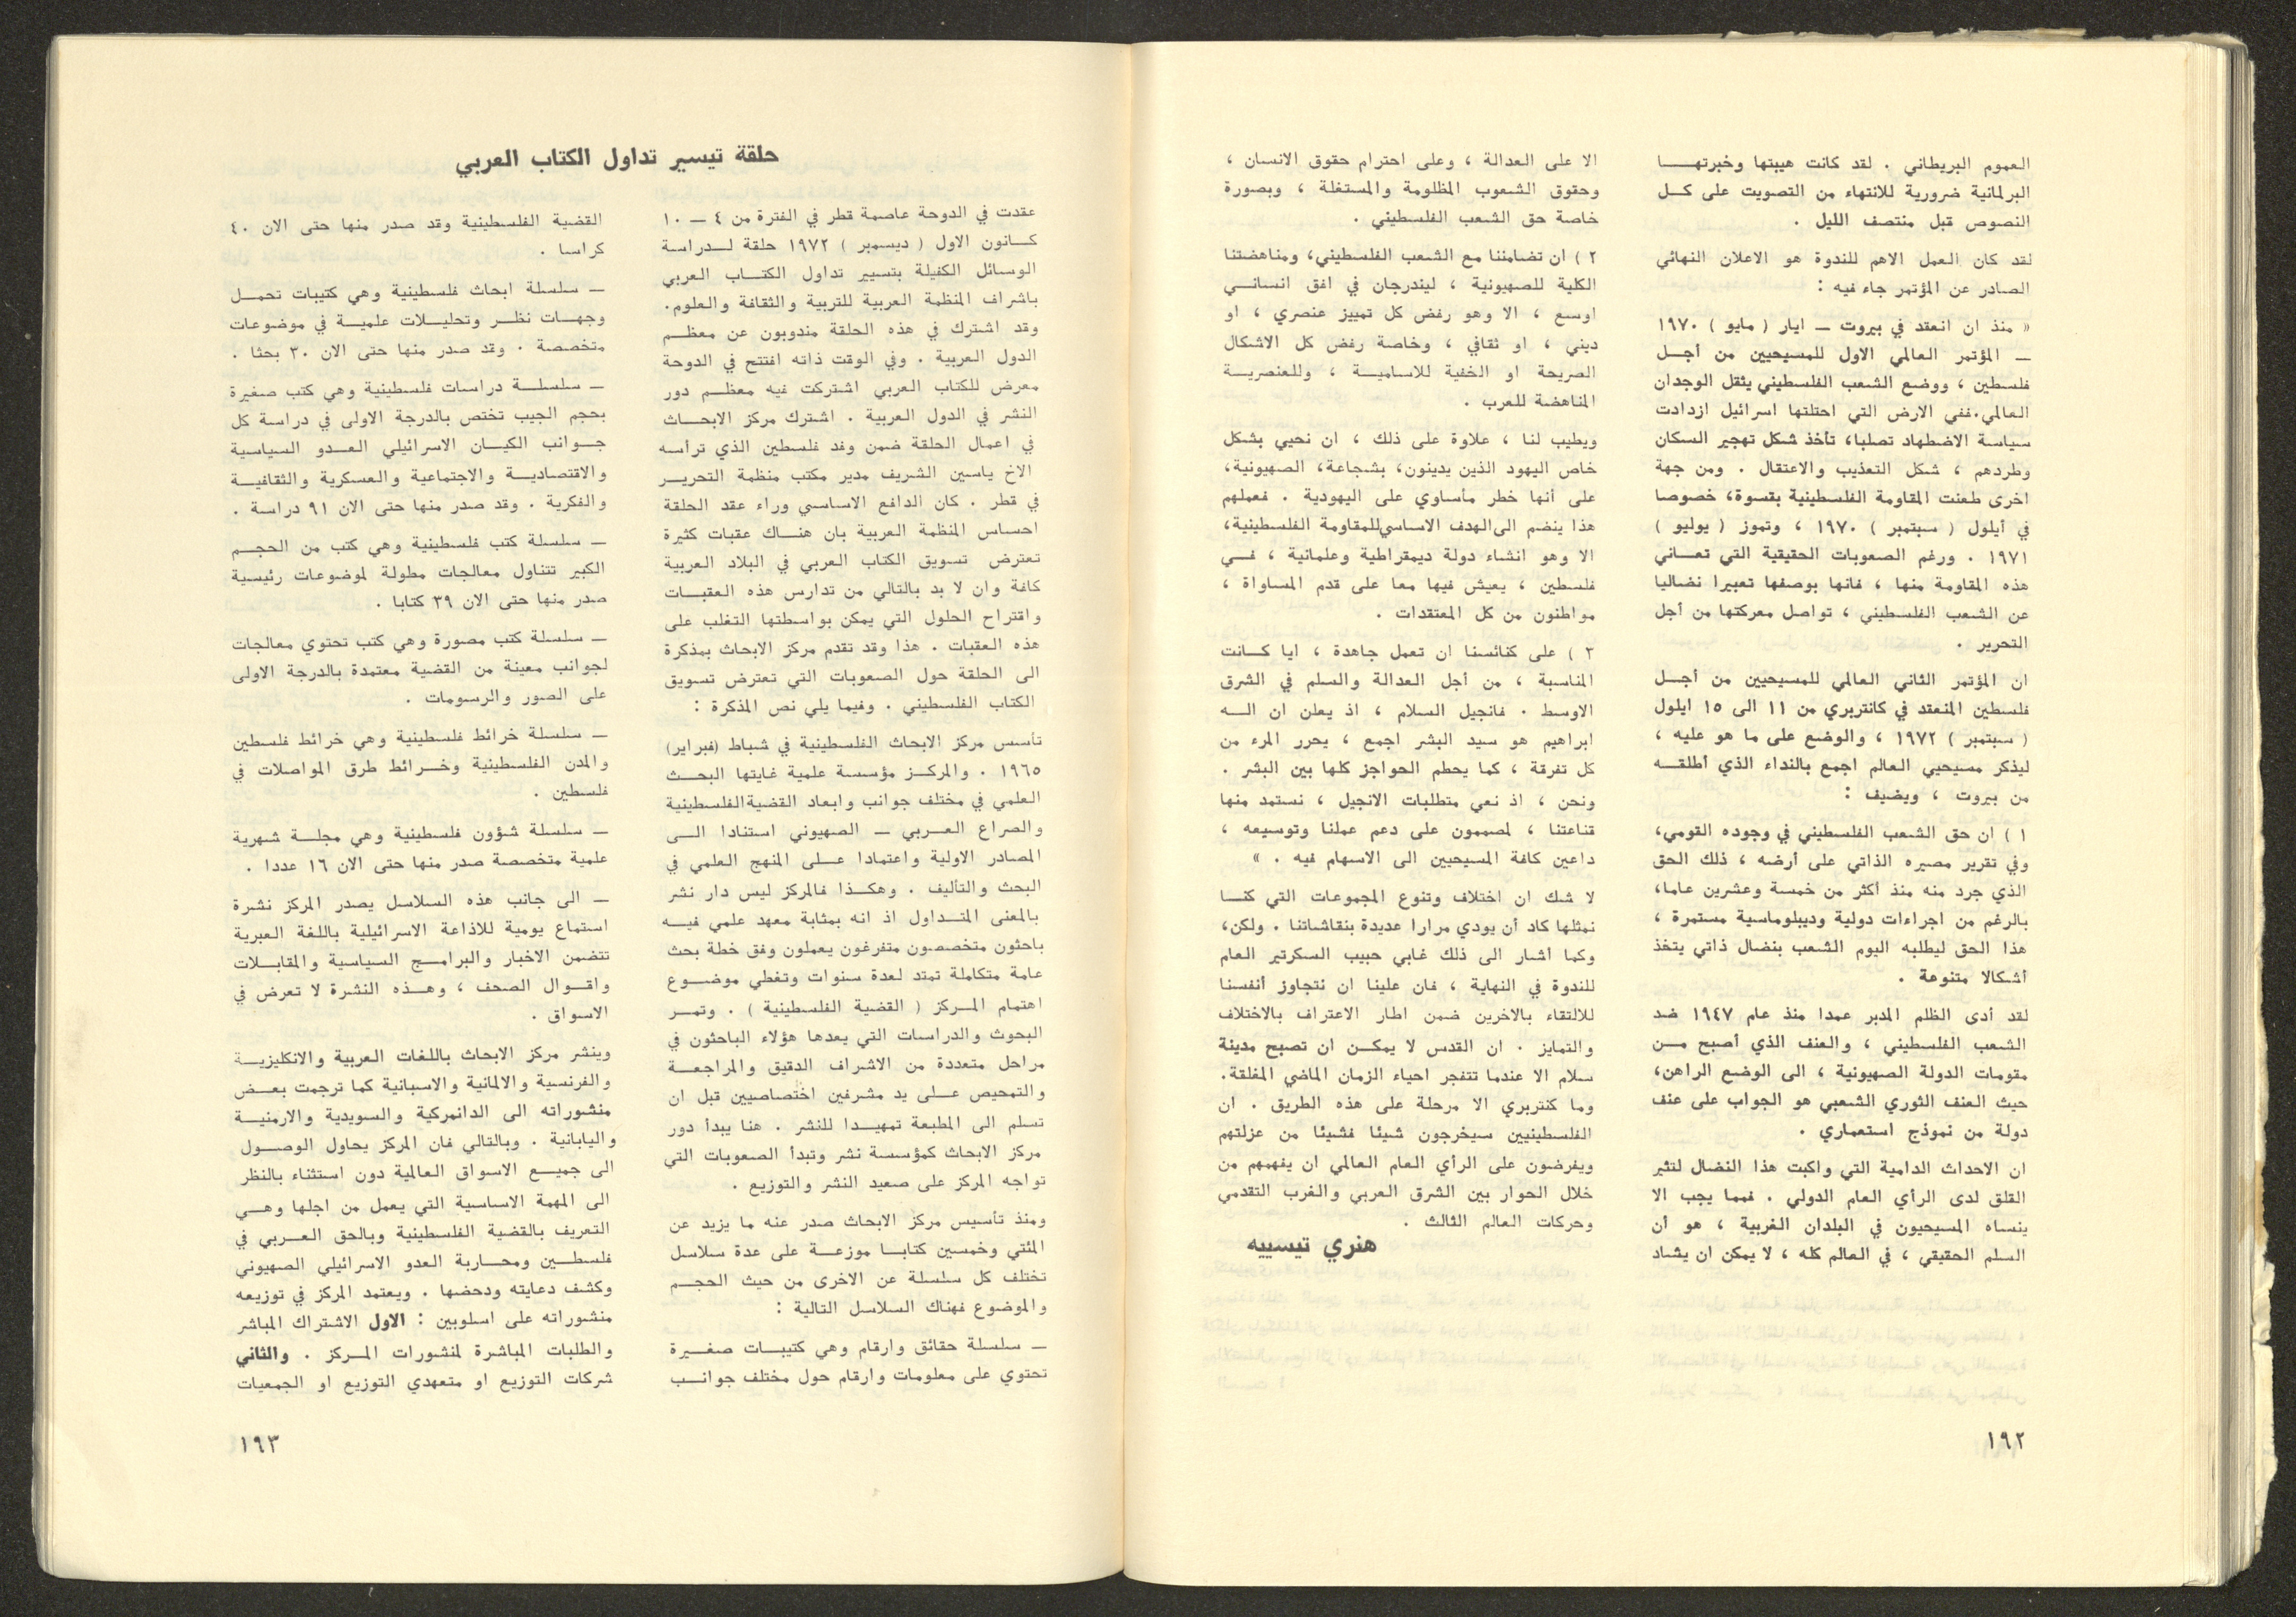 العموم البريطاني . لقد كانت هيبتها وخبرتهـــا
البرلمانية ضرورية للانتهاء من التصويت على كـل
النصوص قبل منتصف الليل .
لقد كان العمل الاهم للندوة هو الاعلان النهائي
الصادر عن المؤتمر جاء فيه :
« منذ ان انعقد في بيروت ـ ايار ( مايو ) ١٩٧٠
ـ المؤتمر العالمي الاول للمسيحيين من أجــل
فلسطين ، ووضع الشعب الفلسطيني يثقل الوجدان
العالمي. ففي الارض التي احتلتها اسرائيل ازدادت
سياسة الاضطهاد تصلبا، تأخذ شكل تهجير السكان
وطردهم ، شكل التعذيب والاعتقال . ومن جهة
اخرى طعنت المقاومة الفلسطينية بقسوة، خصوصا
في أيلول ( سبتمبر ) ١٩٧٠ ، وتموز ( يوليو )
١٩٧١ . ورغم الصعوبات الحقيقية التي تعــاني
هذه المقاومة منها ، فانها بوصفها تعبيرا نضاليا
عن الشعب الفلسطيني ، تواصل معركتها من أجل
التحرير .
ان المؤتمر الثاني العالمي للمسيحيين من أجــل
فلسطين المنعقد في كانتربري من ١١ الى ١٥ ايلول
( سبتمبر ) ١٩٧٢ ، والوضع على ما هو عليه ،
ليذكر مسيحيي العالم اجمع بالنداء الذي أطلقــه
من بيروت ، ويضيف :
١ ) ان حق الشعب الفلسطيني في وجوده القومي،
وفي تقرير مصيره الذاتي على أرضه ، ذلك الحق
الذي جرد منه منذ أكثر من خمسة وعشرين عاما،
بالرغم من اجراءات دولية وديبلوماسية مستمرة ،
هذا الحق ليطلبه اليوم الشعب بنضال ذاتي يتخذ
أشكالا متنوعة .
لقد أدى الظلم المدبر عمدا منذ عام ١٩٤٧ ضد
الشعب الفلسطيني ، والعنف الذي أصبح مـــن
مقومات الدولة الصهيونية ، الى الوضع الراهن،
حيث العنف الثوري الشعبي هو الجواب على عنف
دولة من نموذج استعماري .
ان الاحداث الدامية التي واكبت هذا النضال لتثير
القلق لدى الرأي العام الدولي . فمما يجب الا
ينساه المسيحيون في البلدان الغربية ، هو أن
السلم الحقيقي ، في العالم كله ، لا يمكن ان يشاد
الا على العدالة ، وعلى احترام حقوق الانسان ،
وحقوق الشعوب المظلومة والمستغلة ، وبصورة
خاصة حق الشعب الفلسطيني .
٢ ) ان تضامننا مع الشعب الفلسطيني، ومناهضتنا
الكلية للصهيونية ، ليندرجان في افق انسانــي
اوسع ، الا وهو رفض كل تمييز عنصري ، او
ديني ، او ثقافي ، وخاصة رفض كل الاشكال
الصريحة او الخفية للاساميـــة ، وللعنصريــة
المناهضة للعرب .
ويطيب لنا ، علاوة على ذلك ، ان نحيي بشكل
خاص اليهود الذين يدينون، بشجاعة، الصهيونية،
على أنها خطر مأساوي على اليهودية . فعملهم
هذا ينضم الى الهدف الاساسي للمقاومة الفلسطينية،
الا وهو انشاء دولة ديمقراطية وعلمانية ، فــي
فلسطين ، يعيش فيها معا على قدم المساواة ،
مواطنون من كل المعتقدات .
٣ ) على كنائسنا ان تعمل جاهدة ، ايا كــانت
المناسبة ، من أجل العدالة والسلم في الشرق
الاوسط . فانجيل السلام ، اذ يعلن ان الــه
ابراهيم هو سيد البشر اجمع ، يحرر المرء من
كل تفرقة ، كما يحطم الحواجز كلها بين البشر .
ونحن ، اذ نعي متطلبات الانجيل ، نستمد منها
قناعتنا ، لمصممون على دعم عملنا وتوسيعه ،
داعين كافة المسيحيين الى الاسهام فيه . »
لا شك ان اختلاف وتنوع المجموعات التي كنــا
نمثلها كاد أن يودي مرارا عديدة بنقاشاتنا . ولكن،
وكما اشار الى ذلك غابي حبيب السكرتير العام
للندوة في النهاية ، فان علينا ان نتجاوز أنفسنا
للالتقاء بالاخرين ضمن اطار الاعتراف بالاختلاف
والتمايز . ان القدس لا يمكــن ان تصبح مدينة
سلام الا عندما تتفجر احياء الزمان الماضي المغلقة.
وما كنتربري الا مرحلة على هذه الطريق . ان
الفلسطينيين سيخرجون شيئا فشيئا من عزلتهم
ويفرضون على الرأي العام العالمي ان يفهمهم من
خلال الحوار بين الشرق العربي والغرب التقدمي
وحركات العالم الثالث .
هنري تيسييه
١٩٢
حلقة تيسير تداول الكتاب العربي
عقدت في الدوحة عاصمة قطر في الفترة من ٤ ـ ١٠
كــانون الاول ( ديسمبر ) ١٩٧٢ حلقة لــدراسة
الوسائل الكفيلة بتسيير تداول الكتــاب العربي
باشراف المنظمة العربية للتربية والثقافة والعلوم.
وقد اشترك في هذه الحلقة مندوبون عن معظــم
الدول العربية . وفي الوقت ذاته افتتح في الدوحة
معرض للكتاب العربي اشتركت فيه معظــم دور
النشر في الدول العربية . اشترك مركز الابحــاث
في اعمال الحلقة ضمن وفد فلسطين الذي ترأسه
الاخ ياسين الشريف مدير مكتب منظمة التحريــر
في قطر . كان الدافع الاساسي وراء عقد الحلقة
احساس المنظمة العربية بان هنــاك عقبات كثيرة
تعترض تسويق الكتاب العربي في البلاد العربية
كافة وان لا بد بالتالي من تدارس هذه العقبــات
واقتراح الحلول التي يمكن بواسطتها التغلب على
هذه العقبات . هذا وقد تقدم مركز الابحاث بمذكرة
الى الحلقة حول الصعوبات التي تعترض تسويق
الكتاب الفلسطيني . وفيما يلي نص المذكرة :
تأسس مركز الابحاث الفلسطينية في شباط (فبراير)
١٩٦٥ . والمركــز مؤسسة علمية غايتها البحــث
العلمي في مختلف جوانب وابعاد القضية الفلسطينية
والصراع العــربي ـ الصهيوني استنادا الــى
المصادر الاولية واعتمادا عــلى المنهج العلمي في
البحث والتأليف . وهكــذا فالمركز ليس دار نشر
بالمعنى المتــداول اذ انه بمثابة معهد علمي فيــه
باحثون متخصصون متفرغون يعملون وفق خطة بحث
عامة متكاملة تمتد لعدة سنوات وتغطي موضــوع
اهتمام المــركز ( القضية الفلسطينية ) . وتمــر
البحوث والدراسات التي يعدها هؤلاء الباحثون في
مراحل متعددة من الاشراف الدقيق والمراجعــة
والتمحيص عــلى يد مشرفين اختصاصيين قبل ان
تسلم الى المطبعة تمهيــدا للنشر . هنا يبدأ دور
مركز الابحاث كمؤسسة نشر وتبدأ الصعوبات التي
تواجه المركز على صعيد النشر والتوزيع .
ومنذ تأسيس مركز الابحاث صدر عنه ما يزيد عن
المئتي وخمسين كتابــا موزعــة على عدة سلاسل
تختلف كل سلسلة عن الاخرى من حيث الحجــم
والموضوع فهناك السلاسل التالية :
ـ سلسلة حقائق وارقام وهي كتيبــات صغــيرة
تحتوي على معلومات وارقام حول مختلف جوانــب
القضية الفلسطينية وقد صدر منها حتى الان ٤٠
كراسا .
ـ سلسلة ابحاث فلسطينية وهي كتيبات تحمــل
وجهــات نظــر وتحليــلات علميــة في موضوعات
متخصصة . وقد صدر منها حتى الان ٣٠ بحثا .
ـ سلسلــة دراسات فلسطينية وهي كتب صغيرة
بحجم الجيب تختص بالدرجة الاولى في دراسة كل
جــوانب الكيــان الاسرائيلي العــدو السياسية
والاقتصاديــة والاجتماعية والعسكرية والثقافيــة
والفكرية . وقد صدر منها حتى الان ٩١ دراسة .
ـ سلسلة كتب فلسطينية وهي كتب من الحجــم
الكبير تتناول معالجات مطولة لموضوعات رئيسية
صدر منها حتى الان ٣٩ كتابا .
ـ سلسلة كتب مصورة وهي كتب تحتوي معالجات
لجوانب معينة من القضية معتمدة بالدرجة الاولى
على الصور والرسومات .
ـ سلسلة خرائط فلسطينية وهي خرائط فلسطين
والمدن الفلسطينية وخــرائط طرق المواصلات في
فلسطين .
ـ سلسلة شؤون فلسطينية وهي مجلــة شهرية
علمية متخصصة صدر منها حتى الان ١٦ عددا .
ـ الى جانب هذه السلاسل يصدر المركز نشرة
استماع يومية للاذاعة الاسرائيلية باللغة العبرية
تتضمن الاخبار والبرامــج السياسية والمقابــلات
واقــوال الصحف ، وهــذه النشرة لا تعرض في
الاسواق .
وينشر مركز الابحاث باللغات العربية والانكليزيــة
والفرنسية والالمانية والاسبانية كما ترجمت بعــض
منشوراته الى الدانمركية والسويدية والارمنيــة
واليابانية . وبالتالي فان المركز يحاول الوصــول
الى جميــع الاسواق العالمية دون استثناء بالنظر
الى المهمة الاساسية التي يعمل من اجلها وهــي
التعريف بالقضية الفلسطينية وبالحق العــربي في
فلسطــين ومحــاربة العدو الاسرائيلي الصهيوني
وكشف دعايته ودحضها . ويعتمد المركز في توزيعه
منشوراته على اسلوبين : الاول الاشتراك المباشر
والطلبات المباشرة لمنشورات المــركز . والثاني
شركات التوزيع او متعهدي التوزيع او الجمعيات
١٩٣